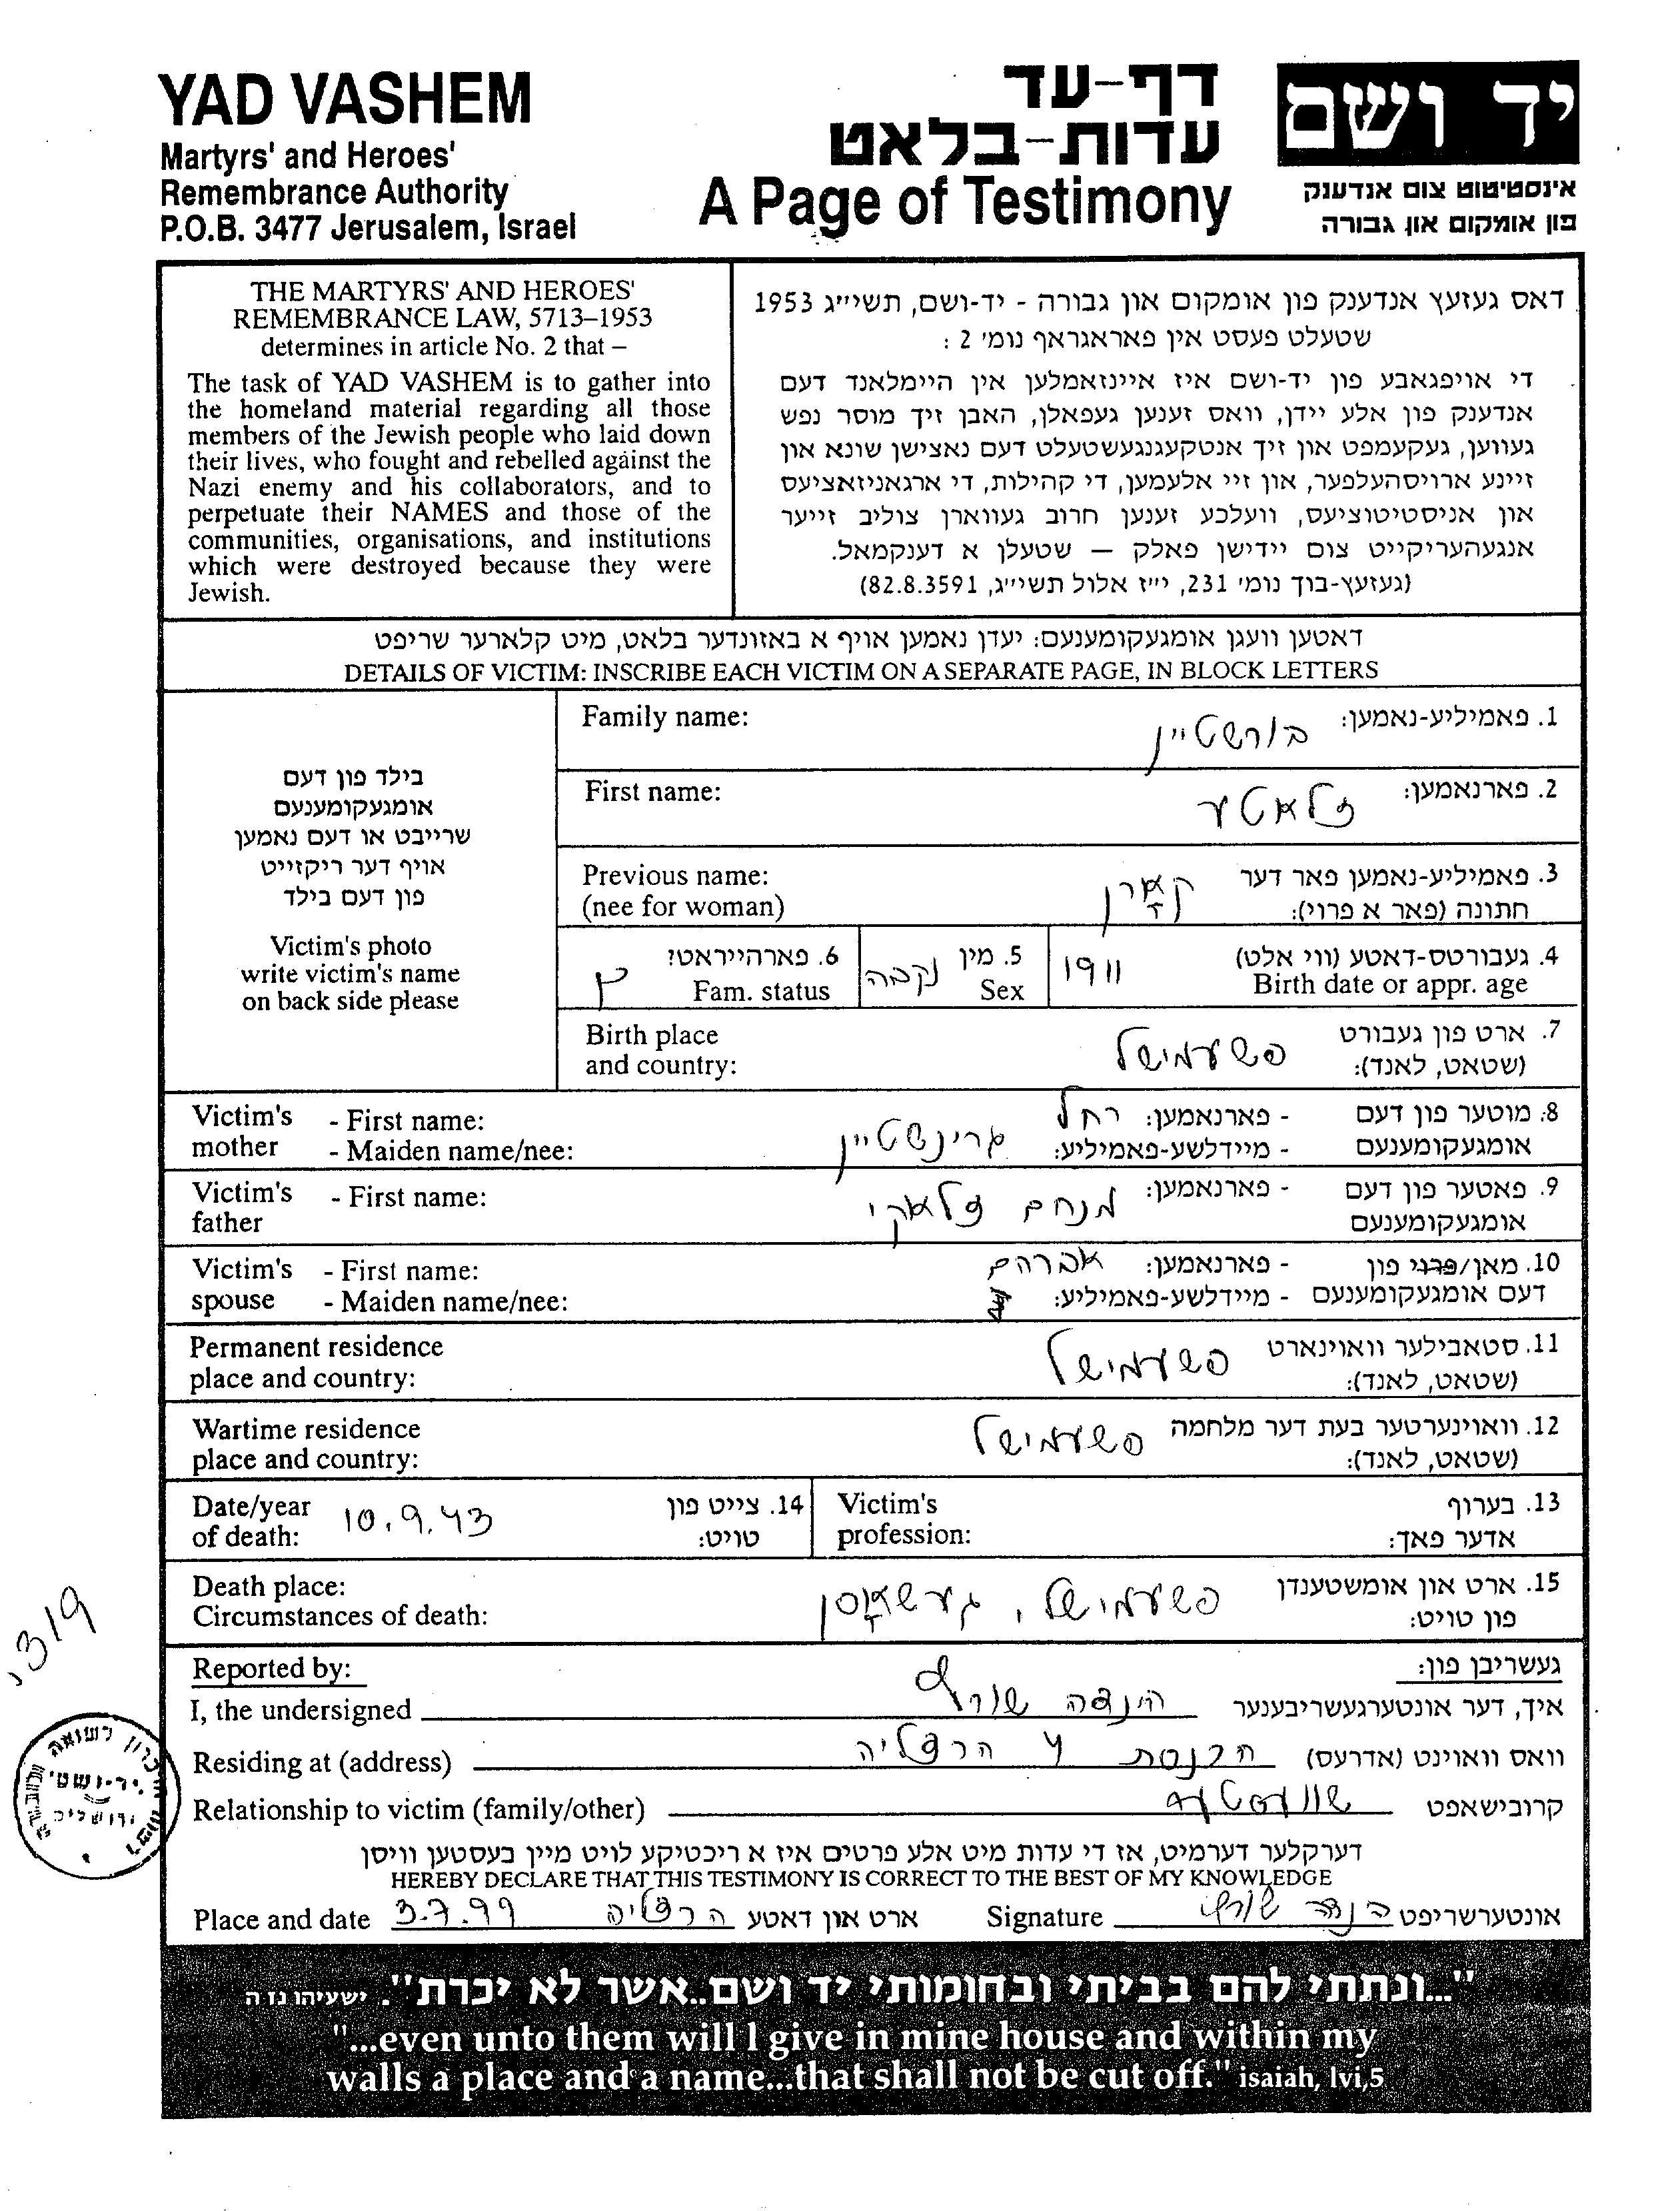 YAD VASHEM
Martyrs' and Heroes'
Remembrance Authority
P.O.B. 3477 Jerusalem, Israel
דף-עד
עדות-בלאט
A Page of Testimony
יד ושם
אינסטיטוט צום אנדענק
פון אומקום און גבורה
THE MARTYRS' AND HEROES'
REMEMBRANCE LAW, 5713–1953
determines in article No. 2 that –
The task of YAD VASHEM is to gather into
the homeland material regarding all those
members of the Jewish people who laid down
their lives, who fought and rebelled against the
Nazi enemy and his collaborators, and to
perpetuate their NAMES and those of the
communities, organisations, and institutions
which were destroyed because they were
Jewish.
דאס געזעץ אנדענק פון אומקום און גבורה - יד-ושם, תשי״ג 1953
שטעלט פעסט אין פאראגראף נומ׳ 2 :
די אויפגאבע פון יד-ושם איז איינזאמלען אין היימלאנד דעם
אנדענק פון אלע יידן, וואס זענען געפאלן, האבן זיך מוסר נפש
געווען, געקעמפט און זיך אנטקעגנגעשטעלט דעם נאצישן שונא און
זיינע ארויסהעלפער, און זיי אלעמען, די קהילות, די ארגאניזאציעס
און אניסטיטוציעס, וועלכע זענען חרוב געווארן צוליב זייער
אנגעהעריקייט צום יידישן פאלק — שטעלן א דענקמאל.
(געזעץ-בוך נומ׳ 231, י״ז אלול תשי״ג, 82.8.3591)
דאטען וועגן אומגעקומענעם: יעדן נאמען אויף א באזונדער בלאט, מיט קלארער שריפט
DETAILS OF VICTIM: INSCRIBE EACH VICTIM ON A SEPARATE PAGE, IN BLOCK LETTERS
בילד פון דעם
אומגעקומענעם
שרייבט או דעם נאמען
אויף דער ריקזייט
פון דעם בילד
Victim's photo
write victim's name
on back side please
Family name: בורשטיין 1. פאמיליע-נאמען:
First name: זלאטע 2. פארנאמען:
Previous name: קארן 3. פאמיליע-נאמען פאר דער
(nee for woman) חתונה (פאר א פרוי):
6. פארהייראט? 5. מין נקבה 1911 4. געבורטס-דאטע (ווי אלט)
Fam. status Sex Birth date or appr. age
Birth place פשעמישל 7. ארט פון געבורט
and country: (שטאט, לאנד):
Victim's - First name: רחל - פארנאמען: 8. מוטער פון דעם
mother - Maiden name/nee: גרינשטיין - מיידלשע-פאמיליע: אומגעקומענעם
Victim's - First name: מנחם - פארנאמען: 9. פאטער פון דעם
father אומגעקומענעם
Victim's - First name: אברהם - פארנאמען: 10. מאן/פרוי פון
spouse - Maiden name/nee: - מיידלשע-פאמיליע: דעם אומגעקומענעם
Permanent residence פשעמישל 11. סטאבילער וואוינארט
place and country: (שטאט, לאנד):
Wartime residence פשעמישל 12. וואוינערטער בעת דער מלחמה
place and country: (שטאט, לאנד):
Date/year 10.9.43 14. צייט פון Victim's 13. בערוף
of death: טויט: profession: אדער פאך:
Death place: פשעמישל, געשאסן 15. ארט און אומשטענדן
Circumstances of death: פון טויט:
Reported by: געשריבן פון:
I, the undersigned הינדה שורץ איך, דער אונטערגעשריבענער
Residing at (address) הכנסת 4 הרצליה וואס וואוינט (אדרעס)
Relationship to victim (family/other) שוועסטער קרובישאפט
דערקלער דערמיט, אז די עדות מיט אלע פרטים איז א ריכטיקע לויט מיין בעסטען וויסן
HEREBY DECLARE THAT THIS TESTIMONY IS CORRECT TO THE BEST OF MY KNOWLEDGE
Place and date 3.7.99 הרצליה ארט און דאטע Signature הינדה שורץ אונטערשריפט
"...ונתתי להם בביתי ובחומותי יד ושם..אשר לא יכרת". ישעיהו נז ה
"...even unto them will I give in mine house and within my
walls a place and a name...that shall not be cut off." isaiah, lvi,5
319
יד-ושם
ירושלים